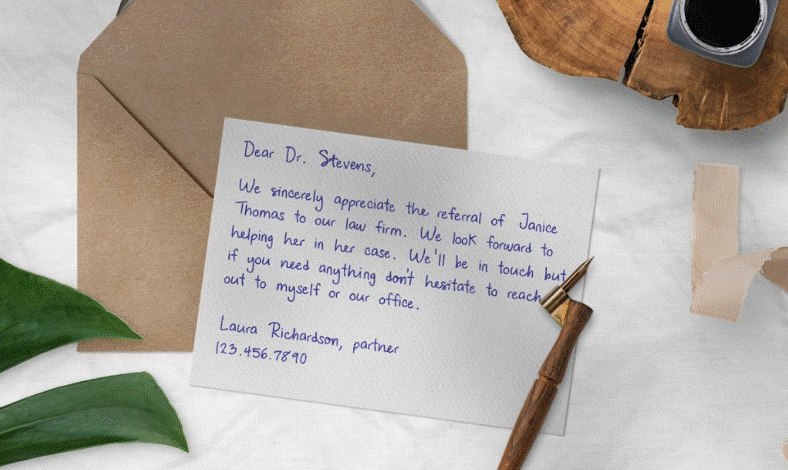 Dear Dr. Stevens,
We sincerely appreciate the referral of Janice
Thomas to our law firm. We look forward to
helping her in her case. We'll be in touch but
if you need anything don't hesitate to reach
out to myself or our office.
Laura Richardson, partner
123.456.7890